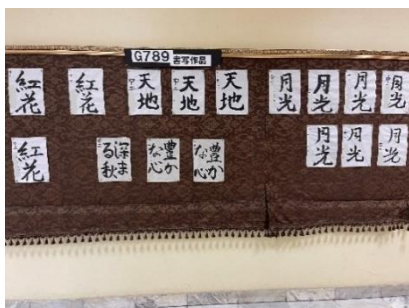 G789 書写作品
紅花
紅花
天地
天地
天地
月光
月光
月光
月光
紅花
深ま
る秋
豊か
な心
豊か
な心
月光
月光
月光